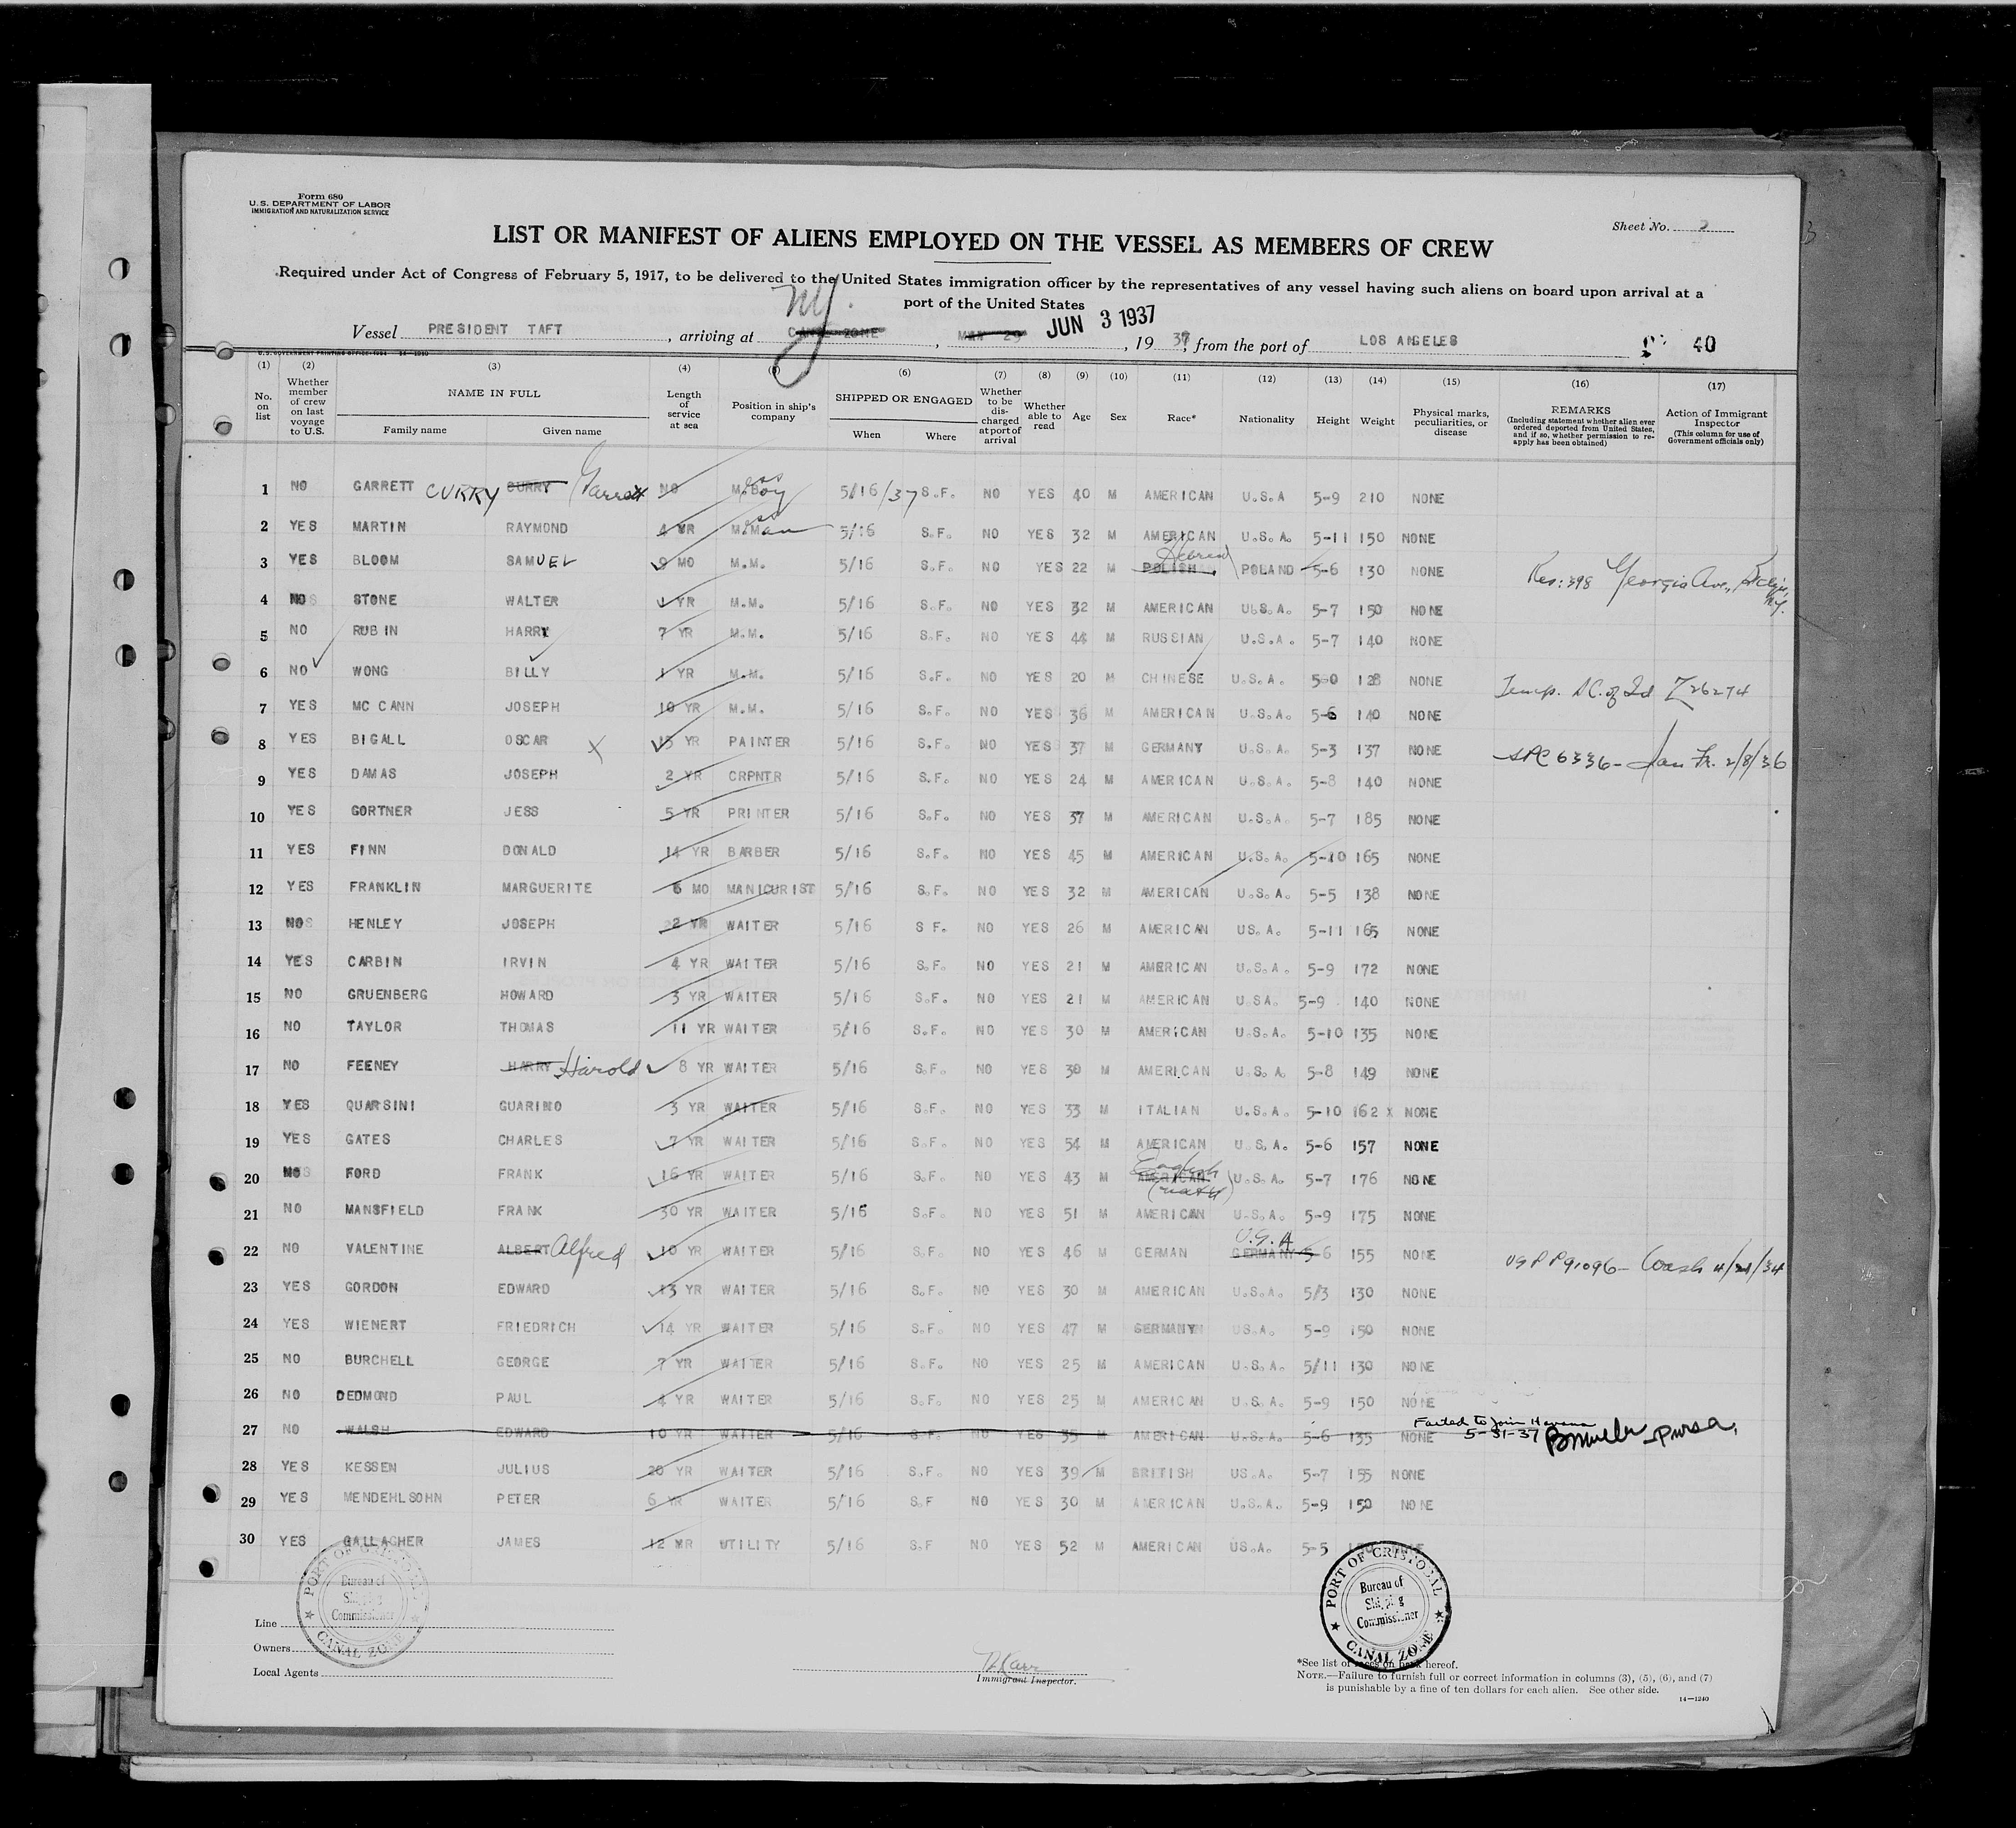 Form 680
U.S. DEPARTMENT OF LABOR
IMMIGRATION AND NATURALIZATION SERVICE
Sheet No. 3
LIST OR MANIFEST OF ALIENS EMPLOYED ON THE VESSEL AS MEMBERS OF CREW
Required under Act of Congress of February 5, 1917, to be delivered to the United States immigration officer by the representatives of any vessel having such aliens on board upon arrival at a
port of the United States
Vessel PRESIDENT TAFT, arriving at CANAL ZONE NY. , MAY 29 JUN 3 1937, 19 37, from the port of LOS ANGELES 40
U.S. GOVERNMENT PRINTING OFFICE: 1934 14-1240
(1) (2) (3) (4) (5) (6) (7) (8) (9) (10) (11) (12) (13) (14) (15) (16) (17)
No. on list
Whether member of crew on last voyage to U.S.
NAME IN FULL
Family name Given name
Length of service at sea
Position in ship's company
SHIPPED OR ENGAGED
When Where
Whether to be discharged at port of arrival
Whether able to read
Age Sex Race* Nationality Height Weight
Physical marks, peculiarities, or disease
REMARKS
(Including statement whether alien ever ordered deported from United States, and if so, whether permission to reapply has been obtained)
Action of Immigrant Inspector
(This column for use of Government officials only)
1 NO GARRETT CURRY CURRY Garrett NO M.Boy 5/16/37 S.F. NO YES 40 M AMERICAN U.S.A 5-9 210 NONE
2 YES MARTIN RAYMOND 4 YR M.Man 5/16 S.F. NO YES 32 M AMERICAN U.S.A. 5-11 150 NONE
3 YES BLOOM SAMUEL 9 MO M.M. 5/16 S.F. NO YES 22 M POLISH Hebrew POLAND 5-6 130 NONE Res: 398 Georgia Ave., Bklyn, NY.
4 NO STONE WALTER 1 YR M.M. 5/16 S.F. NO YES 32 M AMERICAN U.S.A. 5-7 150 NONE
5 NO RUBIN HARRY 7 YR M.M. 5/16 S.F. NO YES 44 M RUSSIAN U.S.A. 5-7 140 NONE
6 NO WONG BILLY 1 YR M.M. 5/16 S.F. NO YES 20 M CHINESE U.S.A. 5-0 128 NONE Temp. S.C. of Id Z26274
7 YES MC CANN JOSEPH 10 YR M.M. 5/16 S.F. NO YES 36 M AMERICAN U.S.A. 5-6 140 NONE
8 YES BIGALL OSCAR X 15 YR PAINTER 5/16 S.F. NO YES 37 M GERMANY U.S.A. 5-3 137 NONE SPC 6336 - San Fr. 2/8/36
9 YES DAMAS JOSEPH 2 YR CRPNTR 5/16 S.F. NO YES 24 M AMERICAN U.S.A. 5-8 140 NONE
10 YES GORTNER JESS 5 YR PRINTER 5/16 S.F. NO YES 37 M AMERICAN U.S.A. 5-7 185 NONE
11 YES FINN DONALD 14 YR BARBER 5/16 S.F. NO YES 45 M AMERICAN U.S.A. 5-10 165 NONE
12 YES FRANKLIN MARGUERITE 6 MO MANICURIST 5/16 S.F. NO YES 32 M AMERICAN U.S.A. 5-5 138 NONE
13 NO HENLEY JOSEPH 2 YR WAITER 5/16 S F. NO YES 26 M AMERICAN US.A. 5-11 165 NONE
14 YES CARBIN IRVIN 4 YR WAITER 5/16 S.F. NO YES 21 M AMERICAN U.S.A. 5-9 172 NONE
15 NO GRUENBERG HOWARD 3 YR WAITER 5/16 S.F. NO YES 21 M AMERICAN U SA. 5-9 140 NONE
16 NO TAYLOR THOMAS 11 YR WAITER 5/16 S.F. NO YES 30 M AMERICAN U.S.A. 5-10 135 NONE
17 NO FEENEY HARRY Harold 8 YR WAITER 5/16 S.F. NO YES 30 M AMERICAN U.S.A. 5-8 149 NONE
18 YES QUARSINI GUARINO 3 YR WAITER 5/16 S.F. NO YES 33 M ITALIAN U.S.A. 5-10 162 X NONE
19 YES GATES CHARLES 7 YR WAITER 5/16 S.F. NO YES 54 M AMERICAN U.S.A. 5-6 157 NONE
20 NO FORD FRANK 16 YR WAITER 5/16 S.F. NO YES 43 M AMERICAN English U.S.A. 5-7 176 NONE
21 NO MANSFIELD FRANK 30 YR WAITER 5/16 S.F. NO YES 51 M AMERICAN U.S.A. 5-9 175 NONE
22 NO VALENTINE ALBERT Alfred 10 YR WAITER 5/16 S.F. NO YES 46 M GERMAN GERMANY U.S.A 5-6 155 NONE US P P91096 - Wash 4/21/34
23 YES GORDON EDWARD 13 YR WAITER 5/16 S.F. NO YES 30 M AMERICAN U.S.A. 5/3 130 NONE
24 YES WIENERT FRIEDRICH 14 YR WAITER 5/16 S.F. NO YES 47 M GERMANY US.A. 5-9 150 NONE
25 NO BURCHELL GEORGE 7 YR WAITER 5/16 S.F. NO YES 25 M AMERICAN U.S.A. 5/11 130 NONE
26 NO DEDMOND PAUL 4 YR WAITER 5/16 S.F. NO YES 25 M AMERICAN U.S.A. 5-9 150 NONE
27 NO WALSH EDWARD 10 YR WAITER 5/16 S.F. NO YES 35 M AMERICAN U.S.A. 5-6 135 NONE Failed to join Havana 5-31-37
28 YES KESSEN JULIUS 20 YR WAITER 5/16 S.F. NO YES 39 M BRITISH US.A. 5-7 155 NONE
29 YES MENDEHLSOHN PETER 6 YR WAITER 5/16 S.F NO YES 30 M AMERICAN U.S.A. 5-9 150 NONE
30 YES GALLAGHER JAMES 12 YR UTILITY 5/16 S.F NO YES 52 M AMERICAN US.A. 5-5
PORT OF CRISTOBAL Bureau of Shipping Commissioner CANAL ZONE
PORT OF CRISTOBAL Bureau of Shipping Commissioner CANAL ZONE
Line
Owners
Local Agents
Immigrant Inspector.
*See list of races on back hereof.
NOTE.—Failure to furnish full or correct information in columns (3), (5), (6), and (7)
is punishable by a fine of ten dollars for each alien. See other side.
14-1240